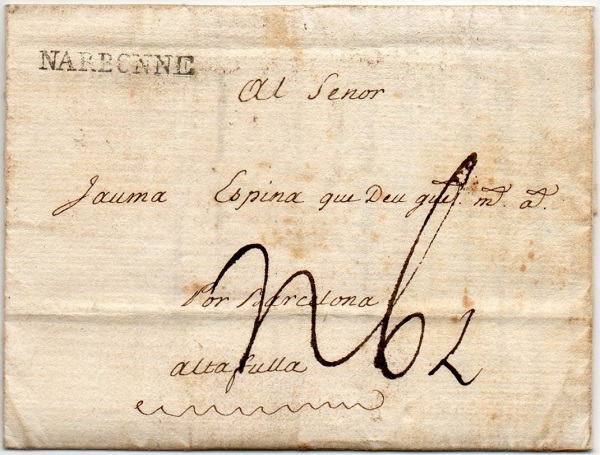 NARBONNE
Al Senor
Jauma Espina que Deu gue. ms. as.
Por Barcelona
altafulla